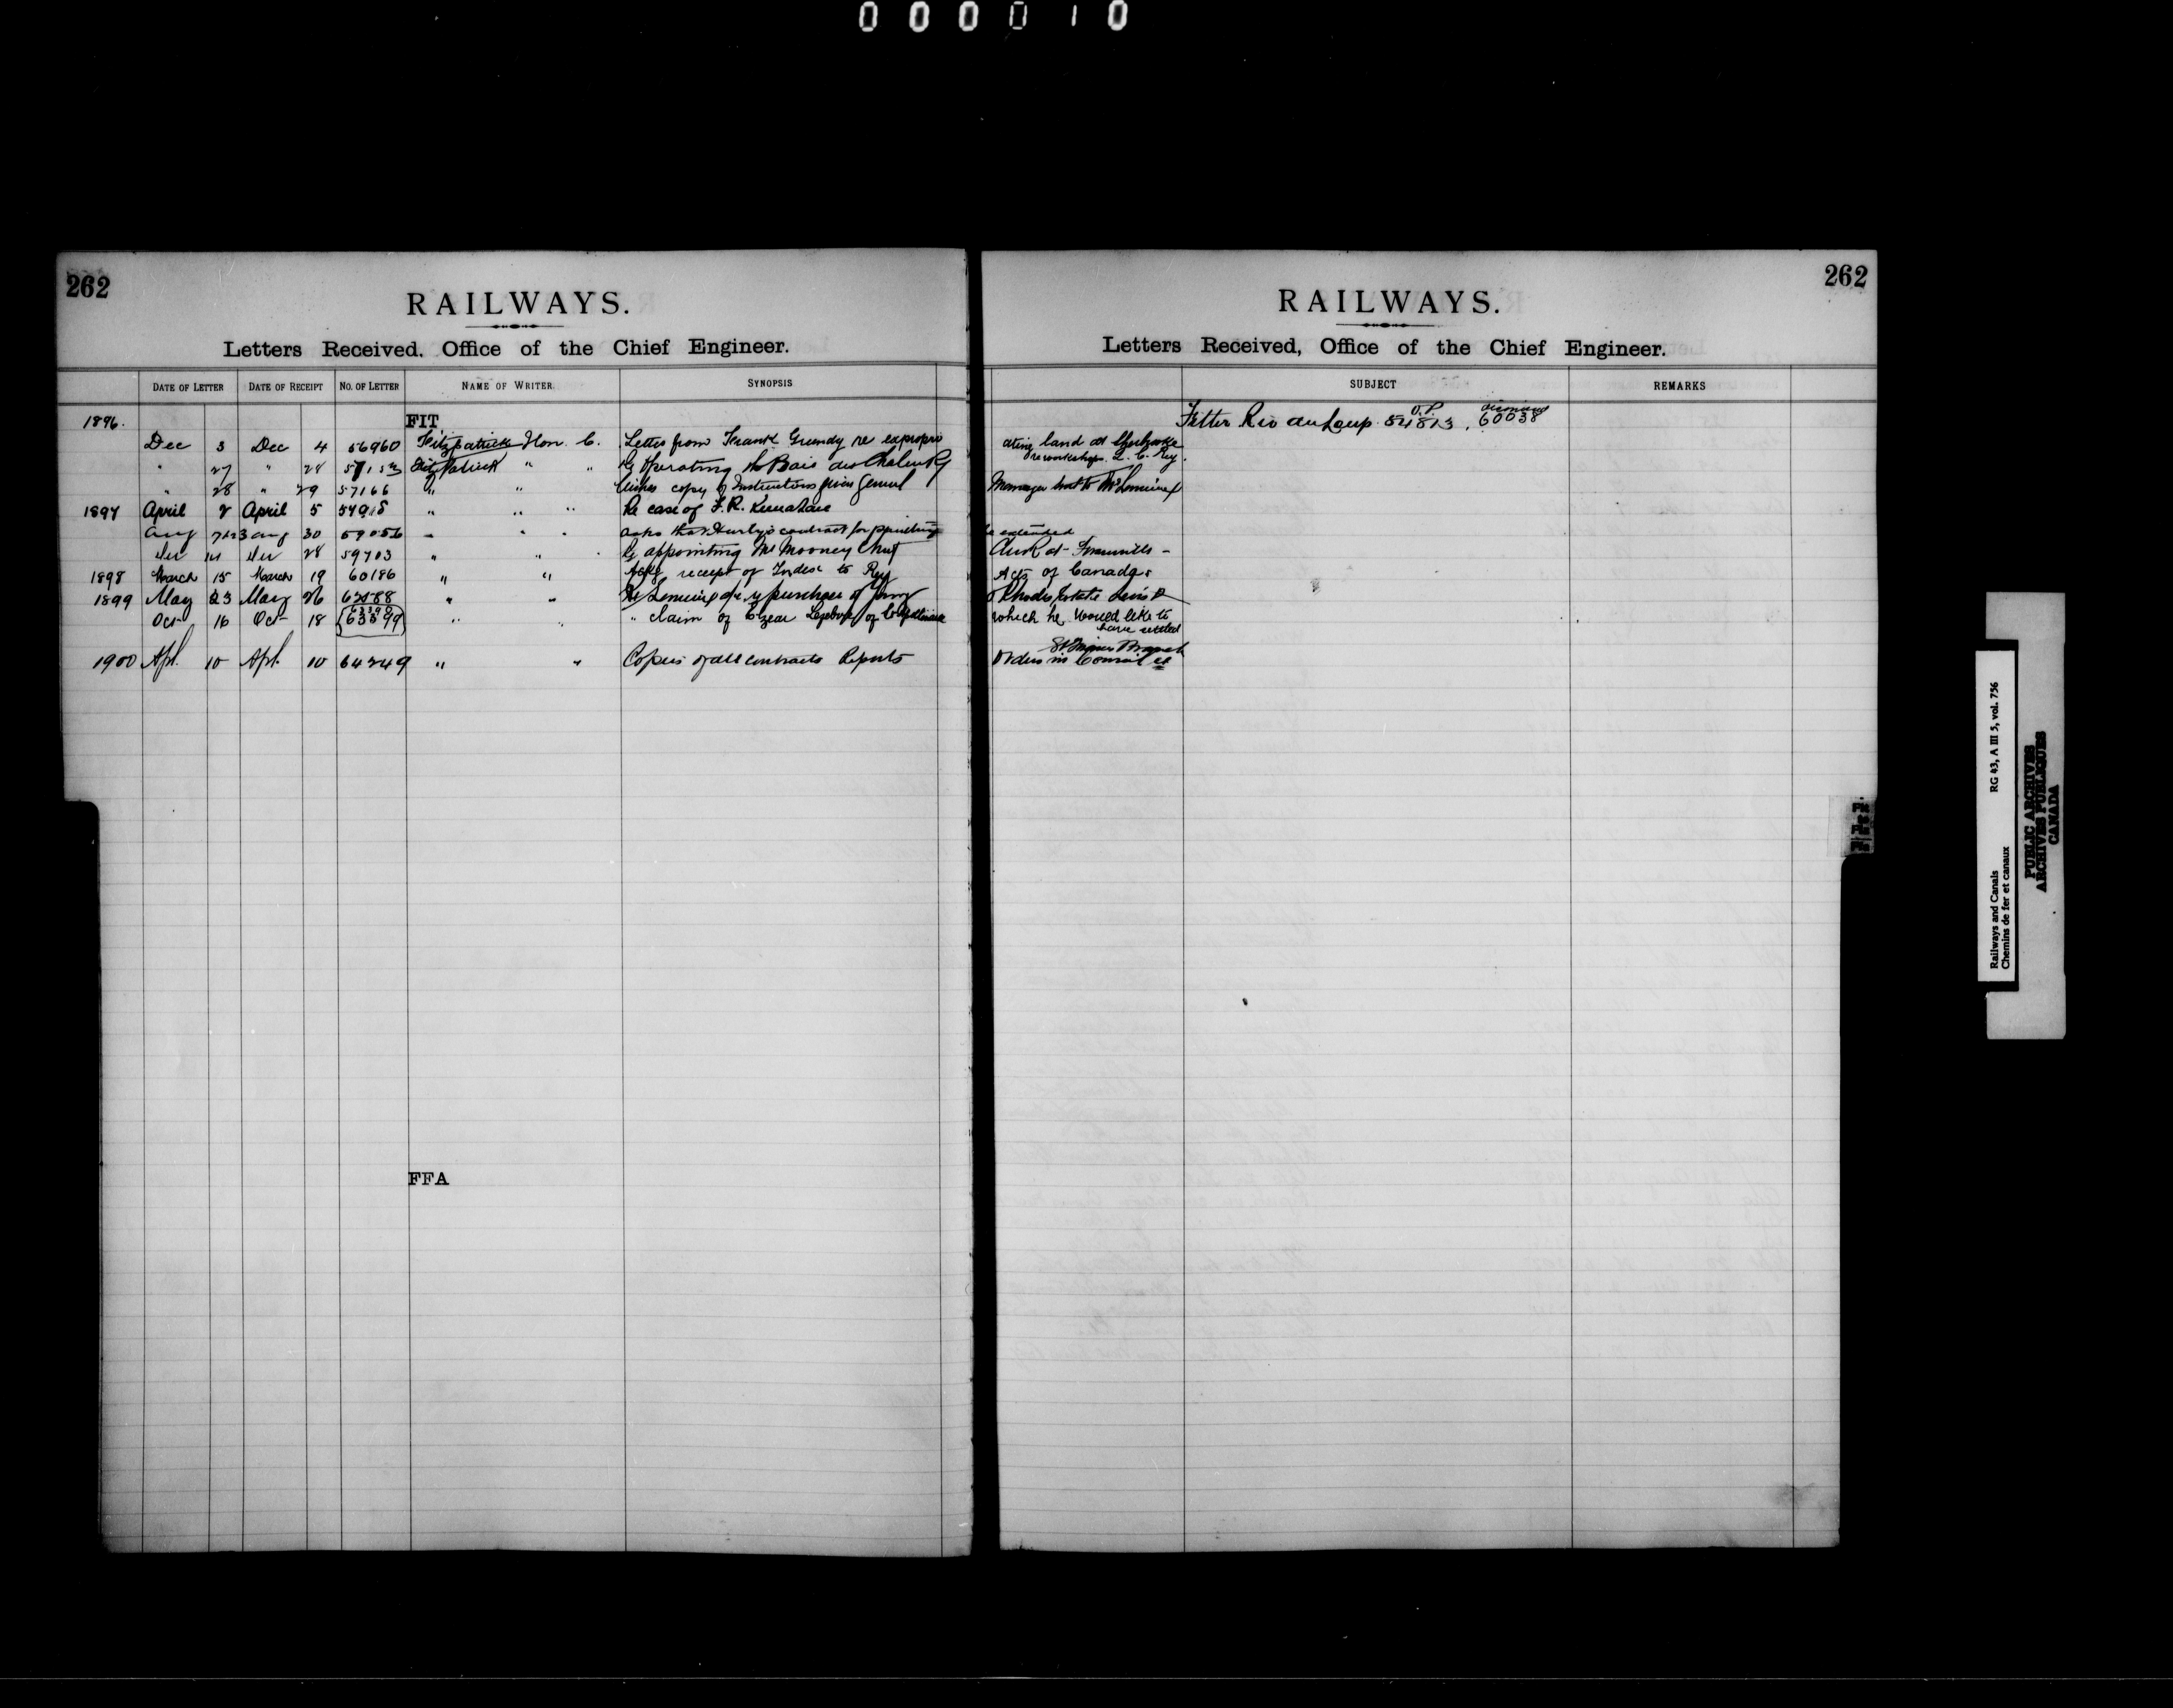 000010
262
RAILWAYS.
Letters Received. Office of the Chief Engineer.
DATE OF LETTER DATE OF RECEIPT NO. OF LETTER NAME OF WRITER SYNOPSIS
1896. FIT
Dec 3 Dec 4 56960 Fitzpatrick Hon. C. Letter from Frank Grundy re expropri
" 27 " 28 Fitzpatrick " " operating Baie des Chaleurs Ry
" 28 " 29 57166 " " Wishes copy of Instructions given General
1897 April 2 April 5 " " " Re case of F. R.
Aug Aug 30 " " " asks that Hurly's contract for
14 28 59703 " " " appointing Mr Mooney
1898 March 15 March 19 60186 " " receipt of Index to Ry
1899 May 23 May 26 " " purchase of
Oct 16 Oct 18 63399 " " " claim of Elzear Lefebvre of
1900 Apl. 10 Apl. 10 64249 " " Copies of all contracts Reports
FFA
262
RAILWAYS.
Letters Received, Office of the Chief Engineer.
SUBJECT REMARKS
Fitter Riv du Loup. 54813, 60038
ating land at Sherbrooke
re workshops. I. C. Ry.
Manager Mr Lemieux
be extended
Clerk at
Acts of Canada.
Rhodes Estate
which he would like to
have settled
Branch
Orders in Council
Railways and Canals RG 43, A III 5, vol. 756
Chemins de fer et canaux
PUBLIC ARCHIVES
ARCHIVES PUBLIQUES
CANADA